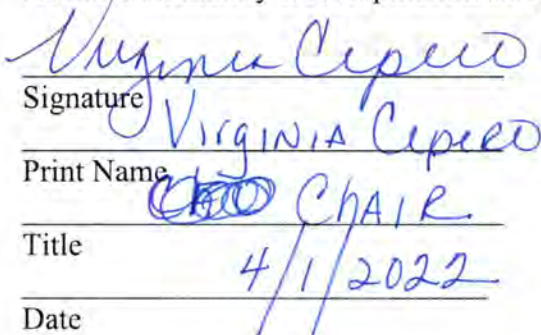 Virginia Cepero
Signature
Virginia Cepero
Print Name
CHAIR
Title
4/1/2022
Date